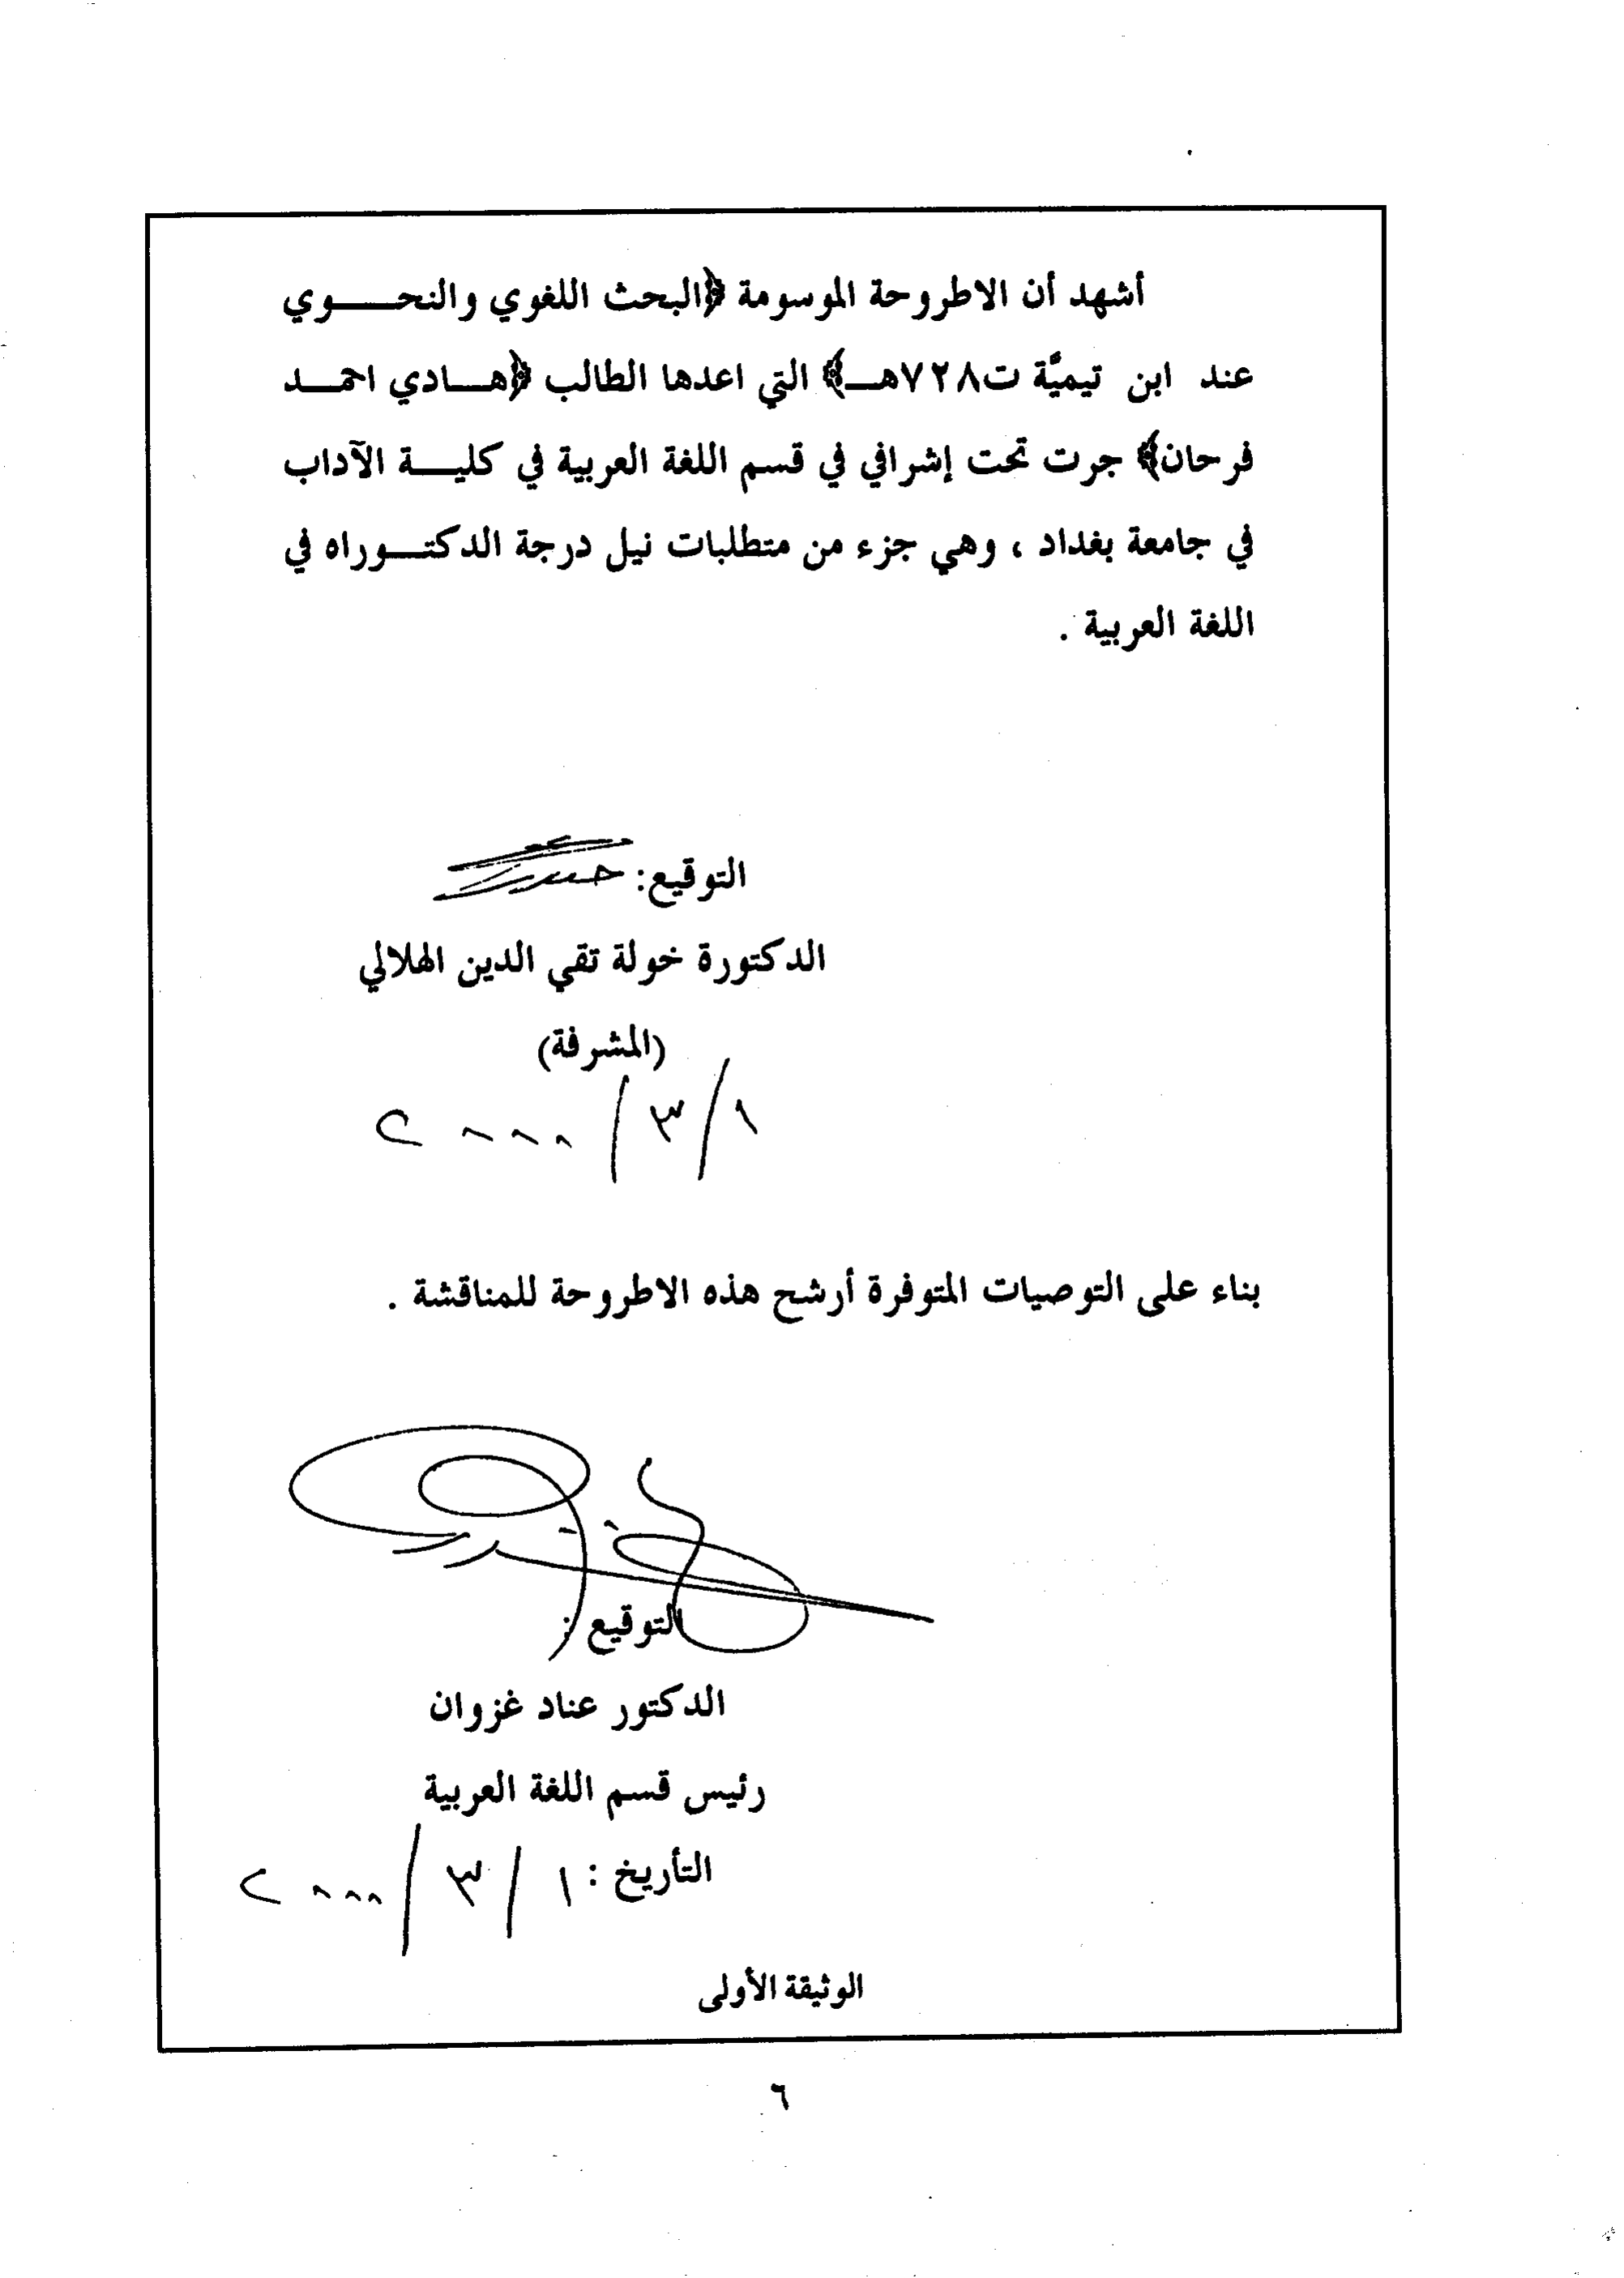 أشهد أن الاطروحة الموسومة ﴿البحث اللغوي والنحـــوي
عند ابن تيميَّة ت٧٢٨هـ﴾ التي اعدها الطالب ﴿هـادي احمـد
فرحان﴾ جرت تحت إشرافي في قسم اللغة العربية في كليـة الآداب
في جامعة بغداد ، وهي جزء من متطلبات نيل درجة الدكتـوراه في
اللغة العربية .
التوقيع:
الدكتورة خولة تقي الدين الهلالي
(المشرفة)
١/٣/٢٠٠٠
بناء على التوصيات المتوفرة أرشح هذه الاطروحة للمناقشة .
التوقيع :
الدكتور عناد غزوان
رئيس قسم اللغة العربية
التأريخ : ١/٣/٢٠٠٠
الوثيقة الأولى
٦